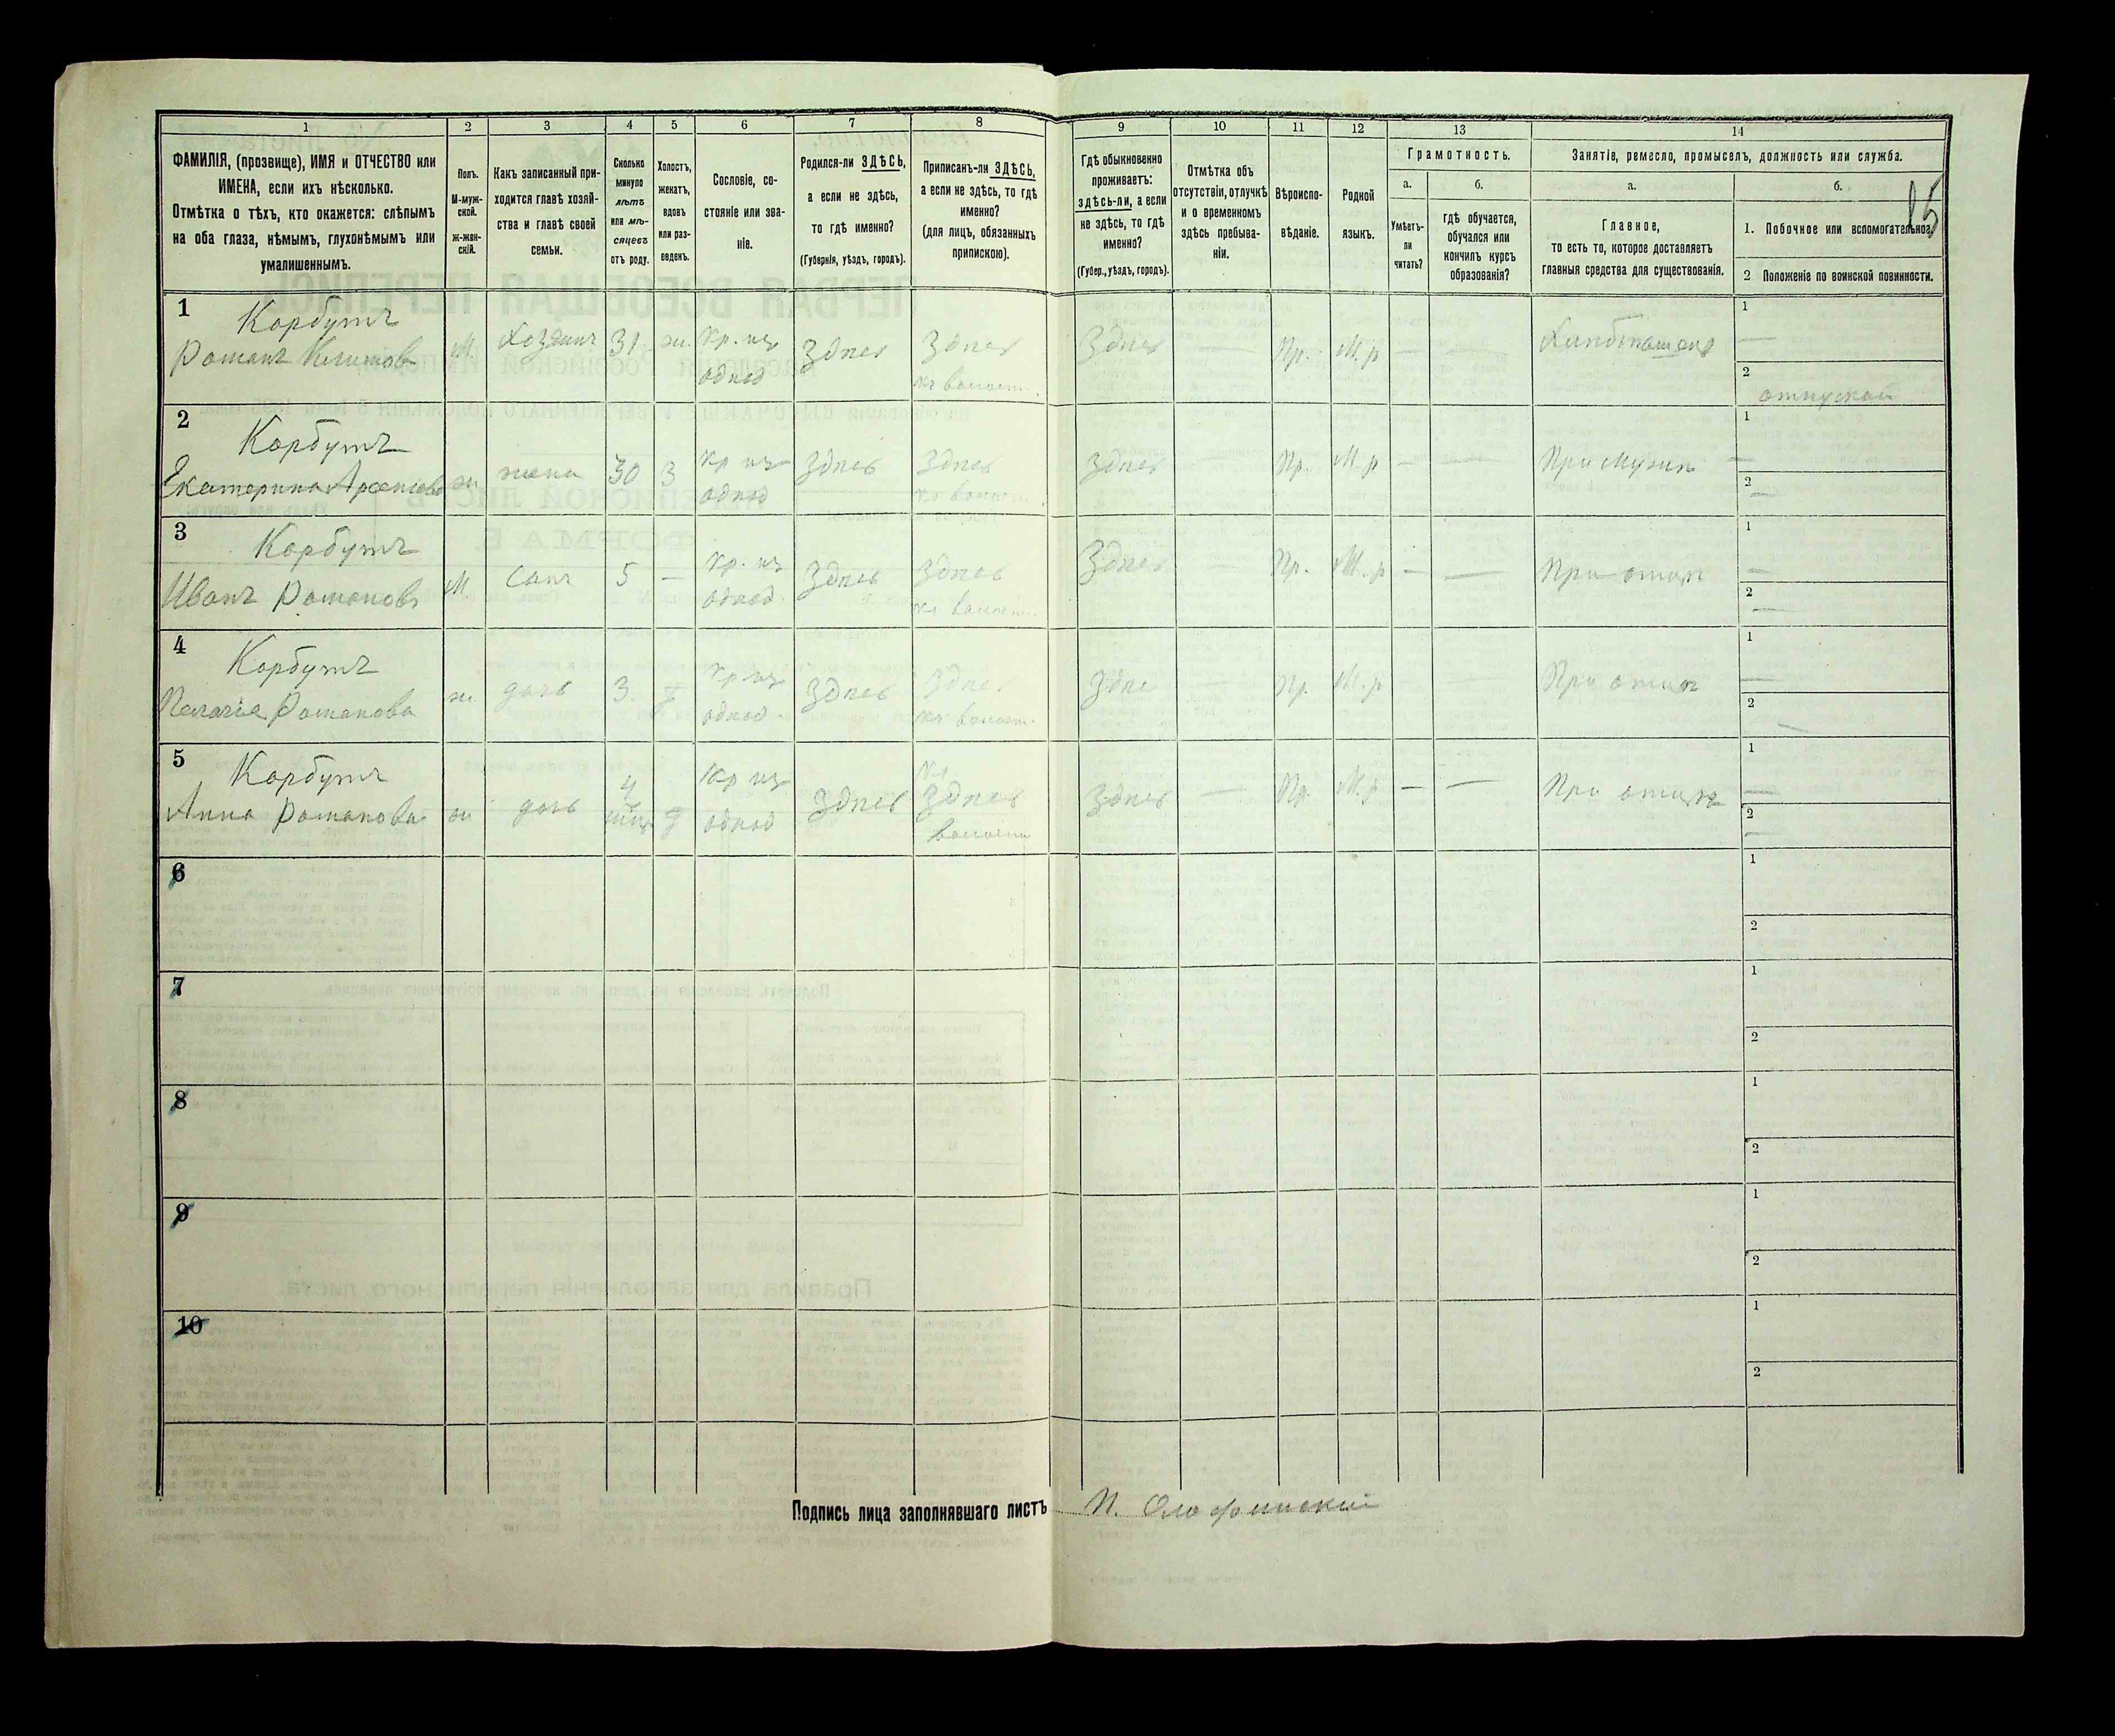 1 2 3 4 5 6 7 8 9 10 11 12 13 14
ФАМИЛІЯ, (прозвище), ИМЯ и ОТЧЕСТВО или
ИМЕНА, если ихъ нѣсколько.
Отмѣтка о тѣхъ, кто окажется: слѣпымъ
на оба глаза, нѣмымъ, глухонѣмымъ или
умалишеннымъ.
Полъ.
М-муж-
ской.
ж-жен-
скій.
Какъ записанный при-
ходится главѣ хозяй-
ства и главѣ своей
семьи.
Сколько
минуло
лѣтъ
или мѣ-
сяцевъ
отъ роду.
Холостъ,
женатъ,
вдовъ
или раз-
веденъ.
Сословіе, со-
стояніе или зва-
ніе.
Родился-ли ЗДѢСЬ,
а если не здѣсь,
то гдѣ именно?
(Губернія, уѣздъ, городъ).
Приписанъ-ли ЗДѢСЬ,
а если не здѣсь, то гдѣ
именно?
(для лицъ, обязанныхъ
припискою).
Гдѣ обыкновенно
проживаетъ:
здѣсь-ли, а если
не здѣсь, то гдѣ
именно?
(Губер., уѣздъ, городъ).
Отмѣтка объ
отсутствіи, отлучкѣ
и о временномъ
здѣсь пребыва-
ніи.
Вѣроиспо-
вѣданіе.
Родной
языкъ.
Грамотность.
а.
Умѣетъ-
ли
читать?
б.
гдѣ обучается,
обучался или
кончилъ курсъ
образованія?
Занятіе, ремесло, промыселъ, должность или служба.
а.
Главное,
то есть то, которое доставляетъ
главныя средства для существованія.
б.
15
1. Побочное или вспомогательное.
2 Положеніе по воинской повинности.
1
Корбутъ
Романъ Климовъ
М. Хозяинъ 31. ж. Кр. из однод Здѣсь Здѣсь къ волост. Здѣсь — Пр. М. р — — Хлѣбопашецъ
1 —
2 отпускной
2
Корбутъ
Екатерина Арсеньева
ж жена 30 З Кр из однод Здѣсь Здѣсь къ волост. Здѣсь — Пр. М. р — — При мужѣ
1 —
2 —
3
Корбутъ
Иванъ Романовъ
М. Сынъ 5 — Кр. из однод. Здѣсь Здѣсь къ волост. Здѣсь — Пр. М. р — — При отцѣ
1 —
2 —
4
Корбутъ
Пелагія Романова
ж. дочь 3. Кр из однод. Здѣсь Здѣсь къ волост. Здѣс — Пр. М. р При отцѣ
1 —
2 —
5
Корбутъ
Анна Романова
ж дочь 4 Кр из однод Здѣсь къ Здѣсь волости Здѣсь — Пр. М. р — — При отцѣ
1 —
2 —
6
1
2
7
1
2
8
1
2
9
1
2
10
1
2
Подпись лица заполнявшаго листъ